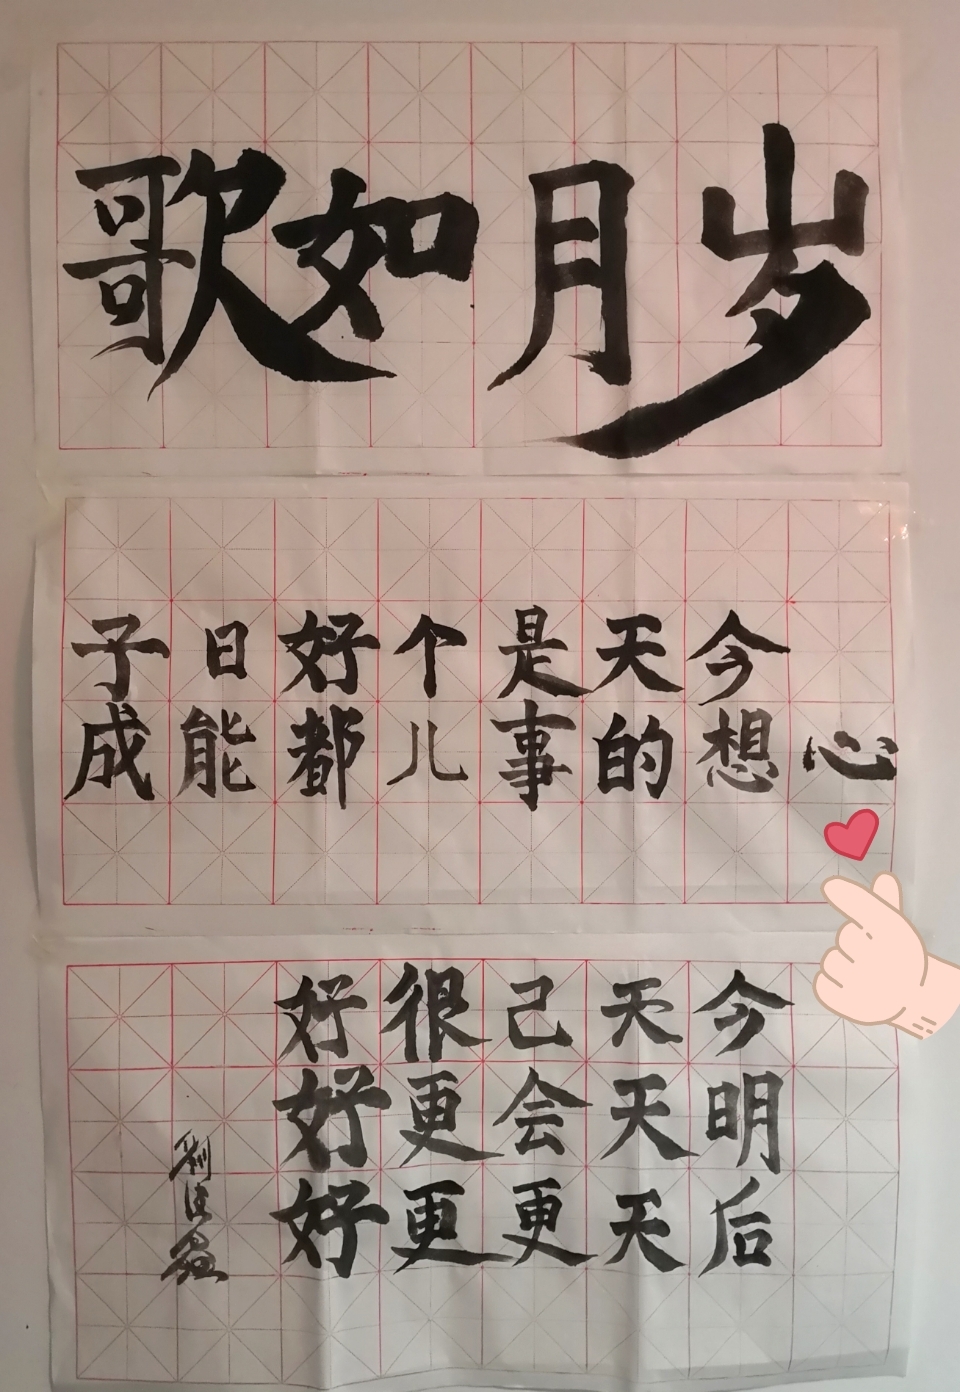 岁月如歌
今天是个好日子
心想的事儿都能成
今天己很好
明天会更好
后天更更好